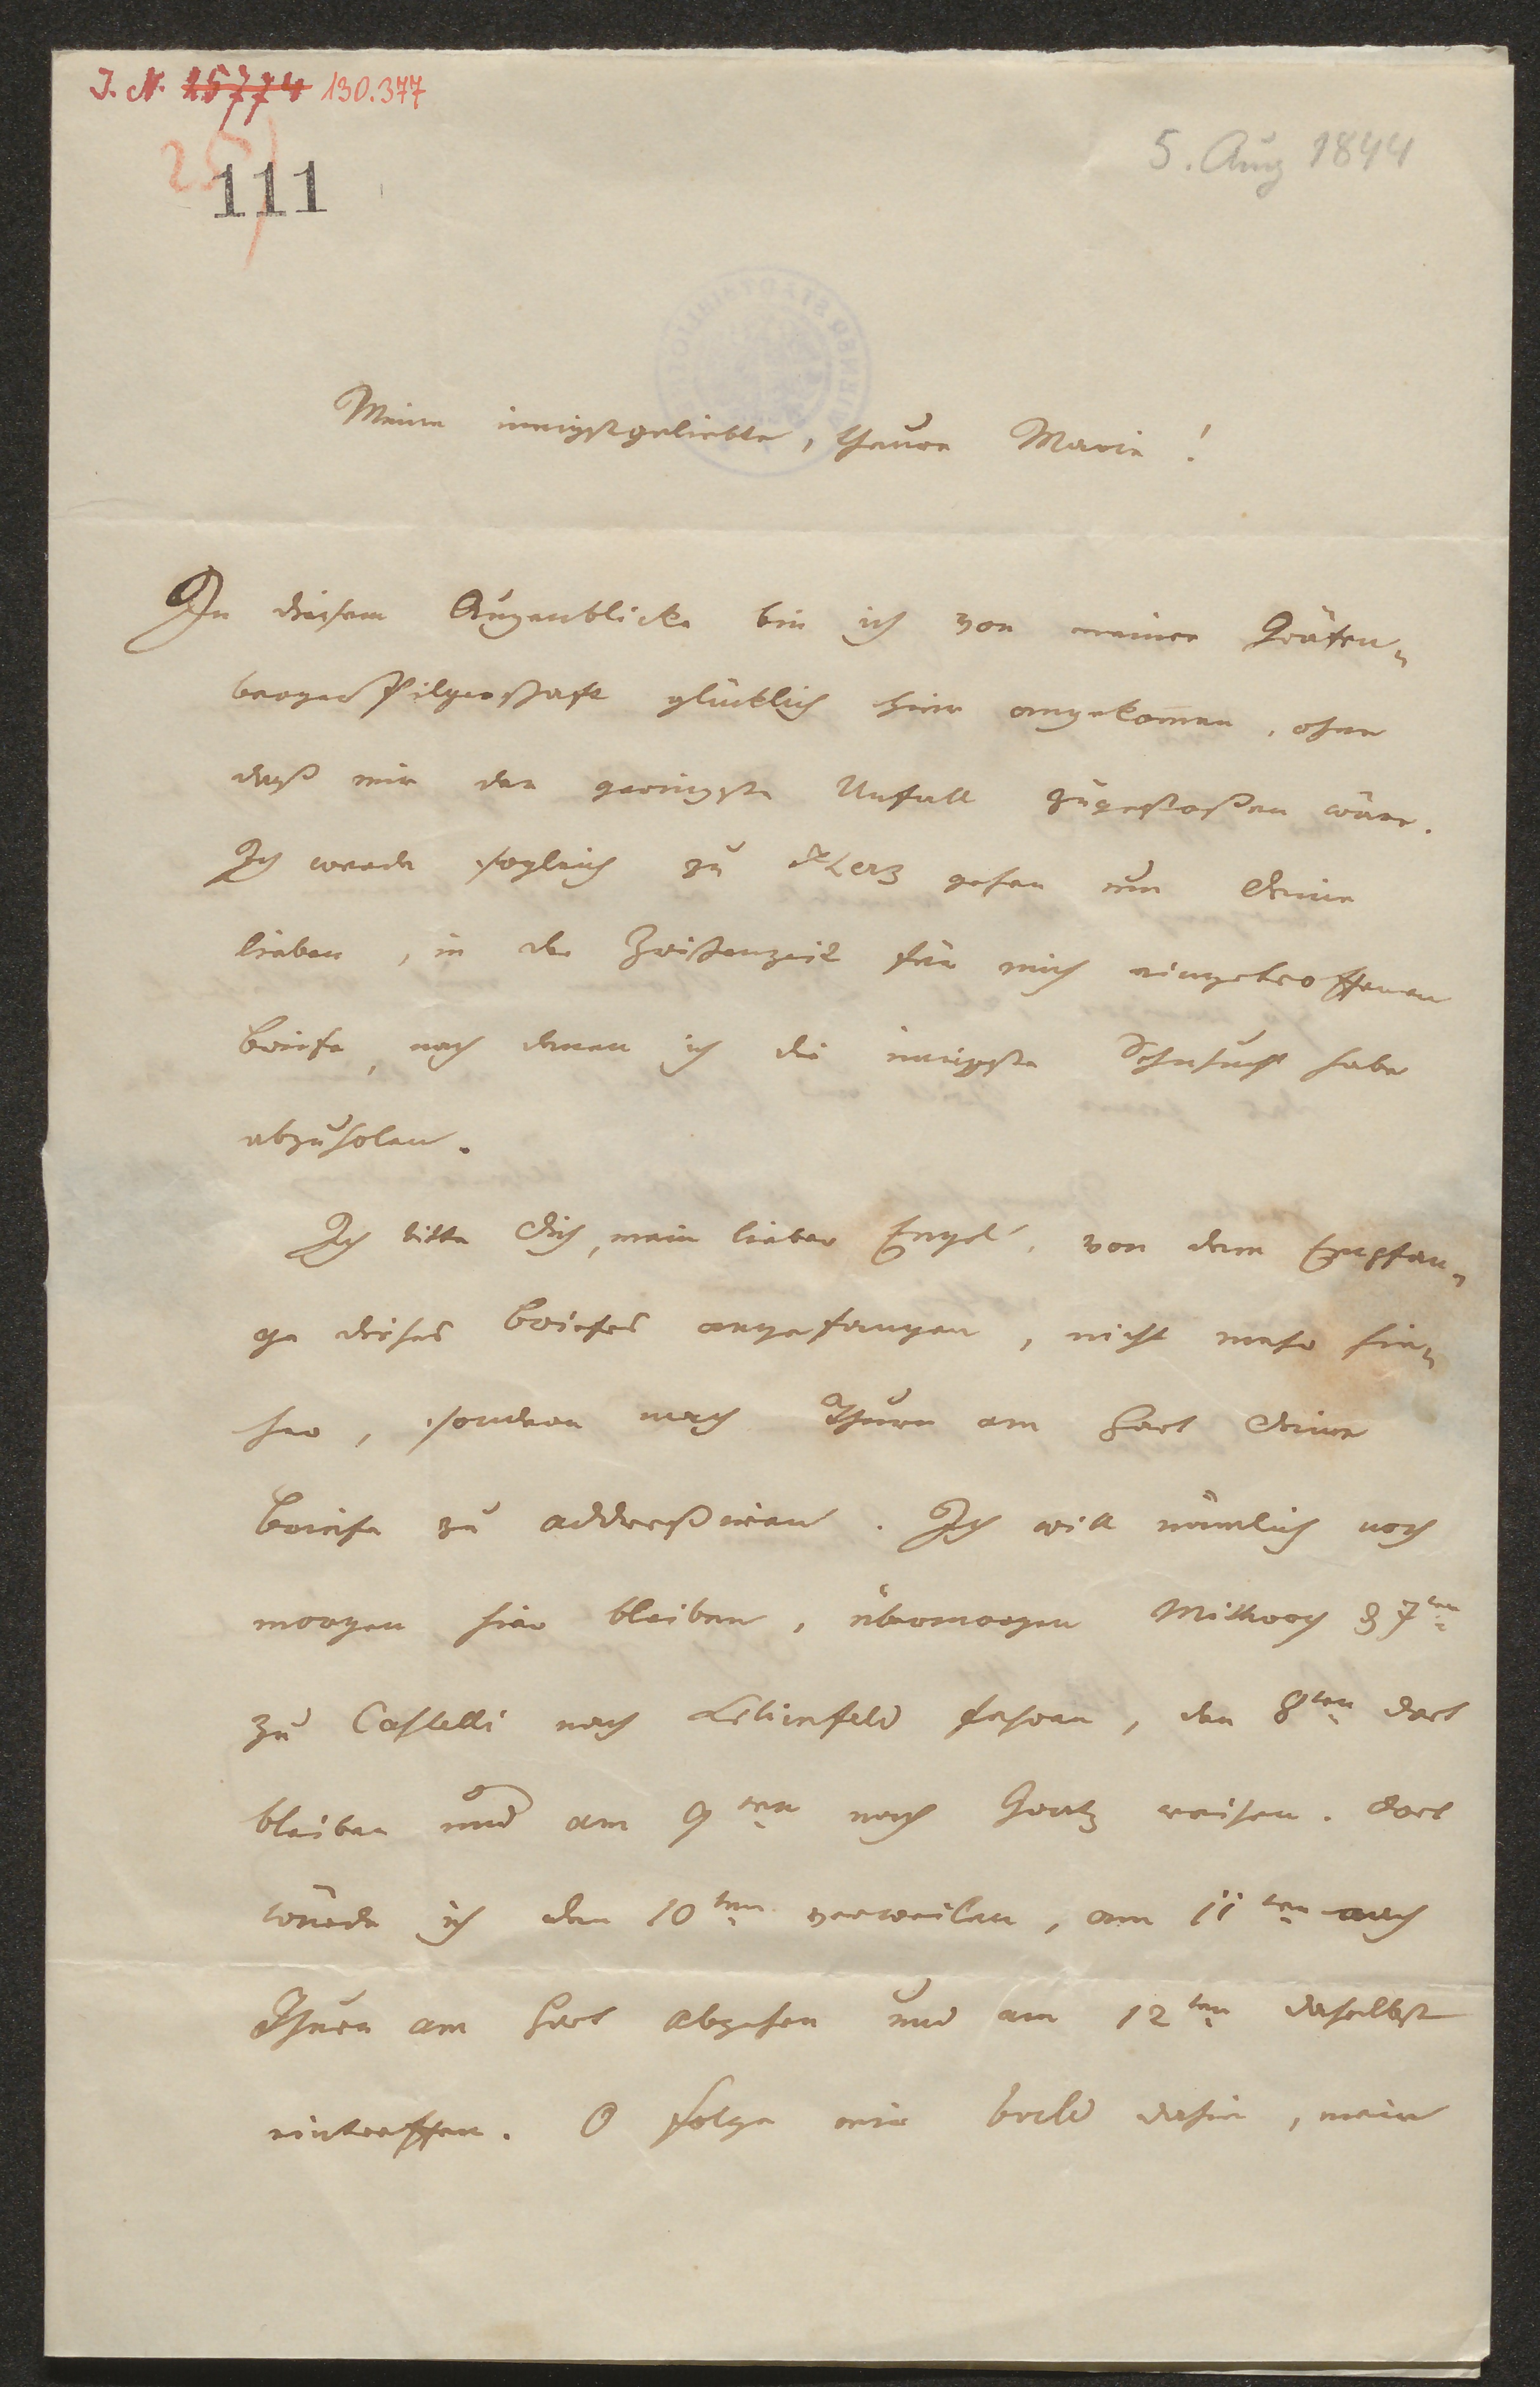 I. N. 25774 130.377
25)
111
5. Aug 1844
Meine innigstgeliebte, theure Marie!
In diesem Augenblicke bin ich von meiner Gräfen„
berger Pilgerschaft glücklich hier angekom̅en, ohne
daß mir der geringste Unfall zugestoßen wäre.
Ich werde sogleich zu gehen um Deine
lieben, in der Zwischenzeit für mich eingetroffenen
Briefe, nach denen ich die innigste Sehnsucht habe
abzuholen.
Ich bitte Dich, mein lieber Engel, von dem Empfan„
ge dieses Briefes angefangen, nicht mehr hie„
her, sondern nach Thurn am Hart Deine
Briefe zu addreßiren. Ich will nämlich noch
morgen hier bleiben, übermorgen Mittwoch d 7ten
zu Castelli nach Lilienfeld fahren, den 8ten dort
bleiben und am 9ten nach Gratz reisen. Dort
würde ich den 10ten verweilen, am 11ten nach
Thurn am Hart abgehen und am 12ten daselbst
eintreffen. O folge mir bald dahin, mein